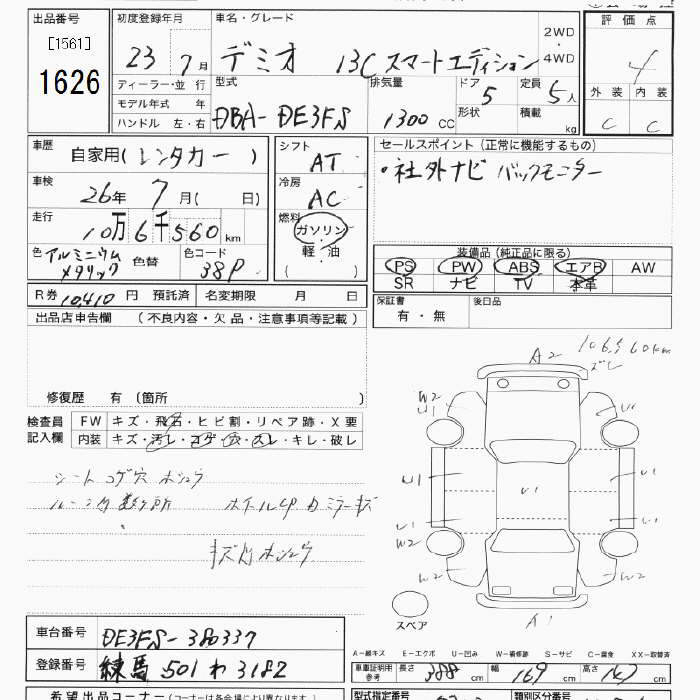 出品番号
[1561]
1626
初度登録年月
23 7月
車名・グレード
デミオ 13C スマートエディション
2WD
・
4WD
評価点
4
外装 内装
C C
ディーラー・並行
モデル年式 年
ハンドル 左・右
型式
DBA-DE3FS
排気量
1300 CC
ドア
5
形状
定員
5人
積載
kg
車歴
自家用(レンタカー)
車検
26年 7月( 日)
走行
10万6千560km
色 アルミニウムメタリック 色替
色コード
38P
シフト
AT
冷房
AC
燃料
ガソリン
軽・油
( )
セールスポイント(正常に機能するもの)
・社外ナビ バックモニター
装備品(純正品に限る)
PS PW ABS エアB AW
SR ナビ TV 本革
R券 10,410円 預託済 名変期限 月 日
保証書
有・無
後日品
出品店申告欄 (不良内容・欠品・注意事項等記載)
修復歴 有 〔箇所 〕
検査員
記入欄
FW キズ・飛石・ヒビ割・リペア跡・X要
内装 キズ・汚レ・コゲ・穴・スレ・キレ・破レ
シート コゲ穴 ホシュウ
ルーフ内 数ケ所
A2
106,560km
ズレ
W2
U1
U1
U1
W2
W2
W2
A1
スペア
車台番号 DE3FS-380337
登録番号 練馬 501 わ 3182
A-線キズ E-エクボ U-凹み W-補修跡 S-サビ C-腐食 XX-取替済
車庫証明用
参考
長さ 388cm 幅 169cm 高さ 147cm
希望出品コーナー(コーナーは各会場により異なります)
型式指定番号
類別区分番号